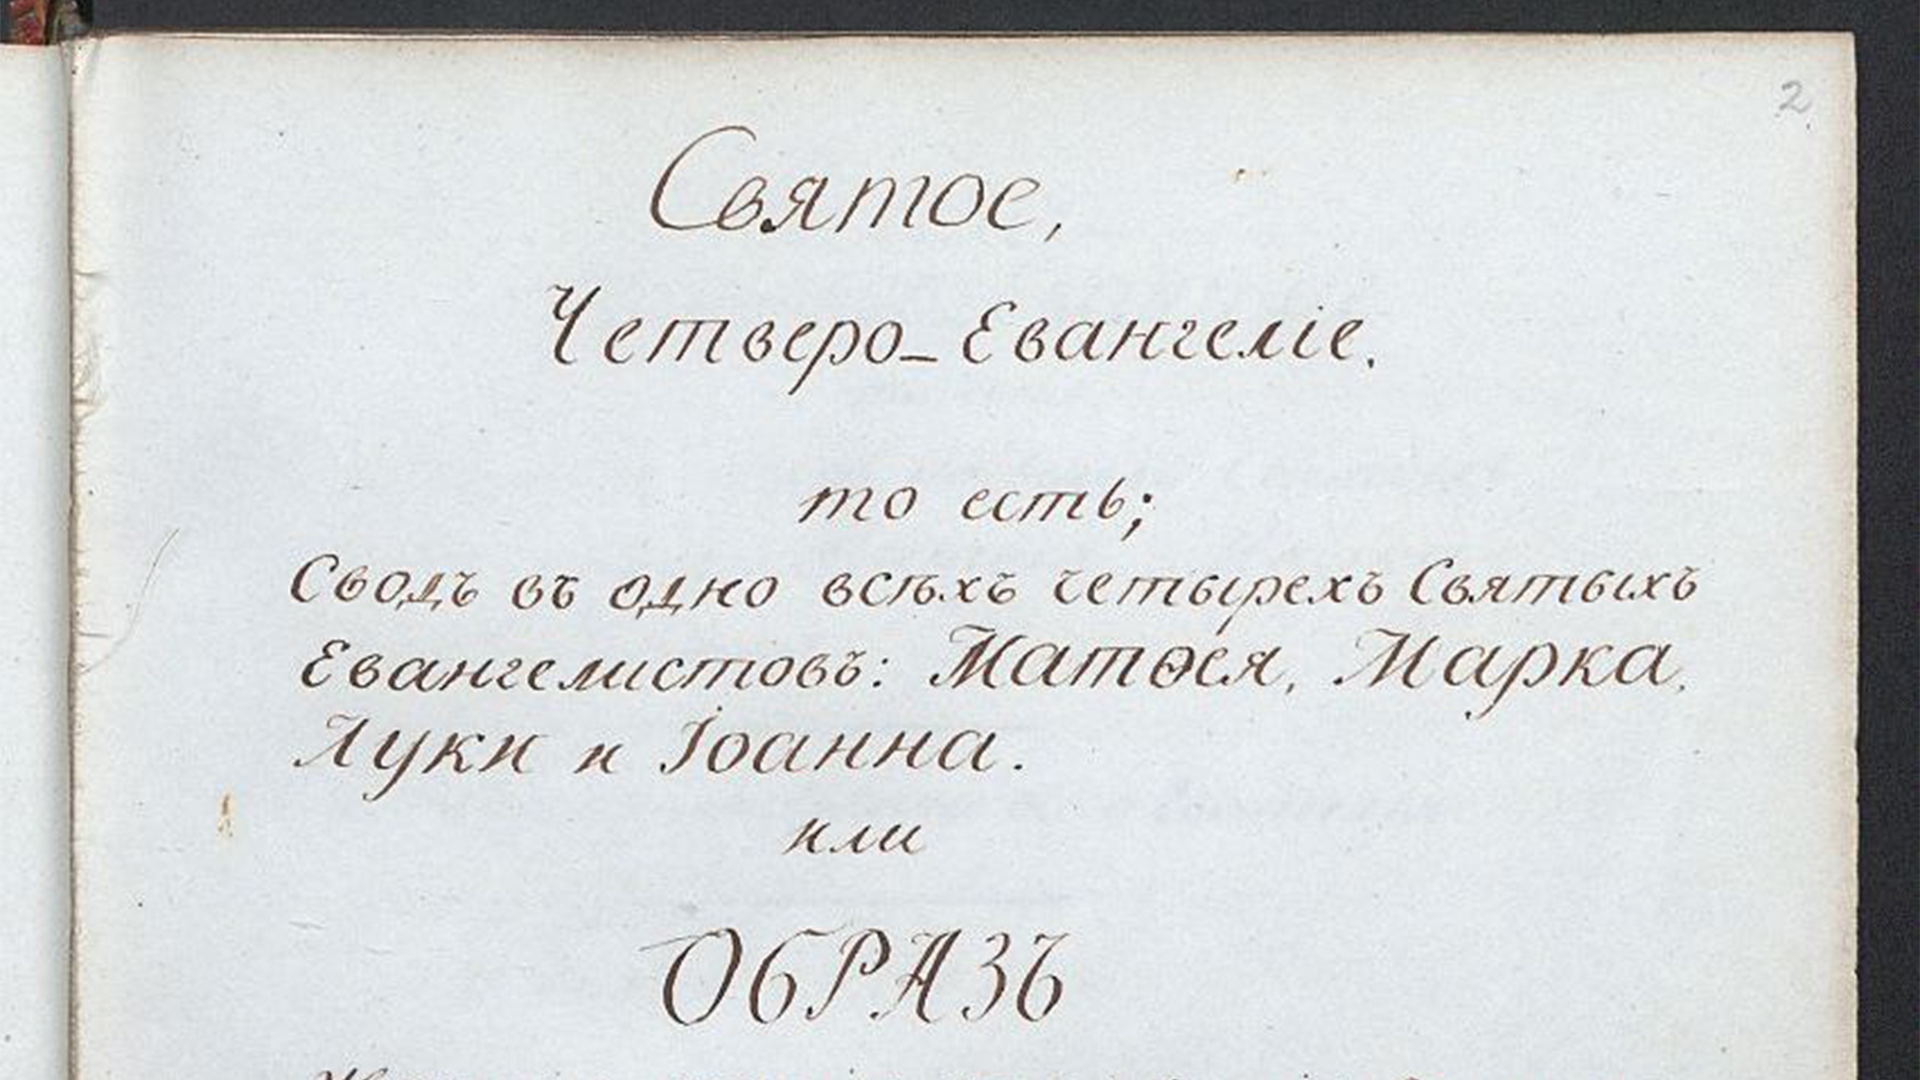 2
Святое,
Четверо-Евангеліе.
то есть;
Сводъ въ одно всѣхъ четырехъ Святыхъ
Евангелистовъ: Матѳея, Марка,
Луки и Іоанна.
или
ОБРАЗЪ